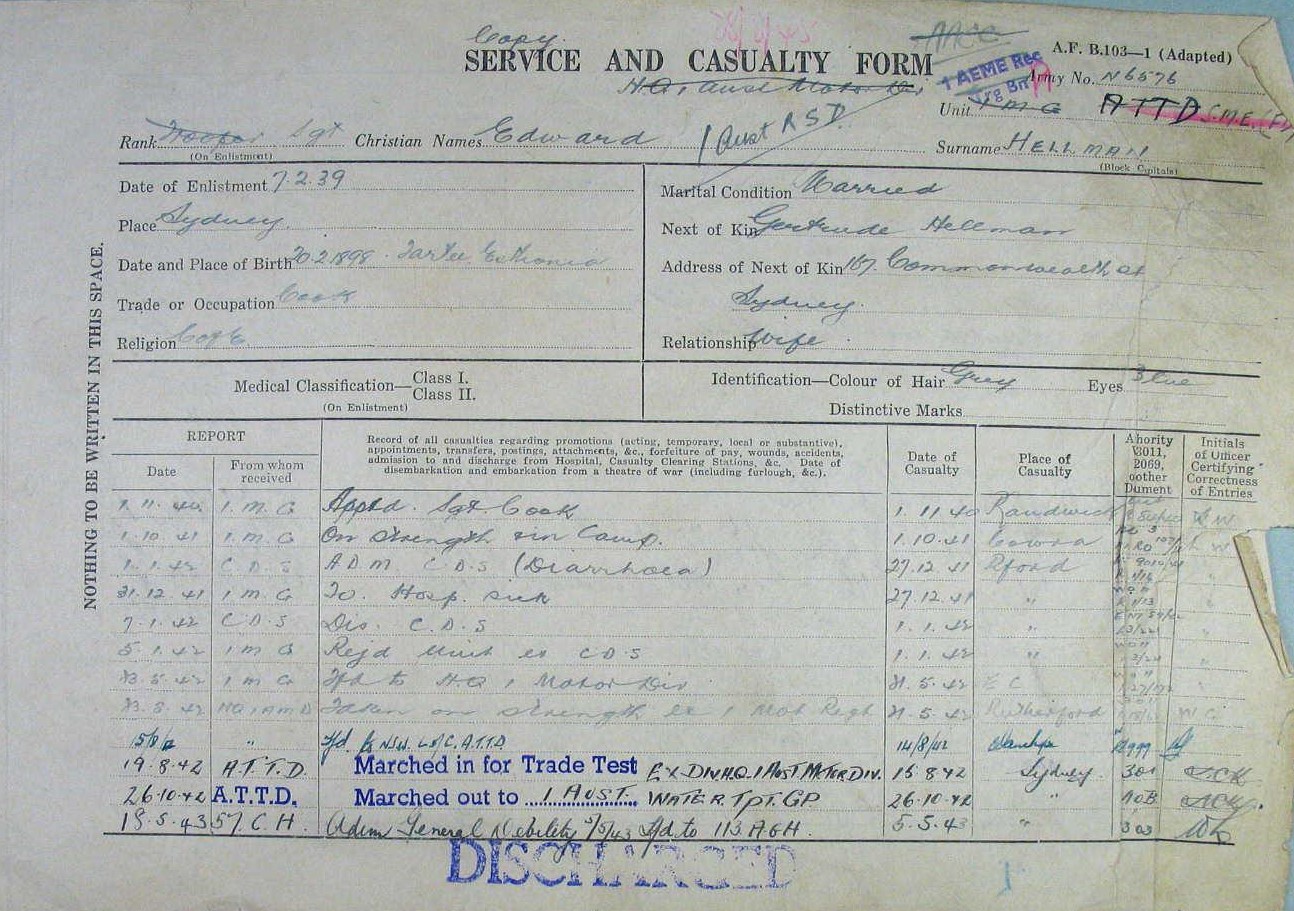 Copy
SERVICE AND CASUALTY FORM
A.F. B.103—1 (Adapted)
1 AEME Rec
Trg Bn
Army No. N6576
H.Q. 1 Aust Motor Div
Unit 1 M G ATTD S.M.E.
Rank Trooper Sgt Christian Names Edward
(On Enlistment)
1 Aust RSD
Surname HELLMAN
(Block Capitals)
Date of Enlistment 7.2.39
Marital Condition Married
Place Sydney.
Next of Kin Gertrude Hellman
Date and Place of Birth 20.2.1898. Esthonia
Address of Next of Kin 167. Commonwealth St
Sydney.
Trade or Occupation Cook
Religion C of E
Relationship Wife
Medical Classification— Class I.
Class II.
(On Enlistment)
Identification—Colour of Hair Grey Eyes Blue
Distinctive Marks
NOTHING TO BE WRITTEN IN THIS SPACE.
REPORT
Date
From whom received
Record of all casualties regarding promotions (acting, temporary, local or substantive),
appointments, transfers, postings, attachments, &c., forfeiture of pay, wounds, accidents,
admission to and discharge from Hospital, Casualty Clearing Stations, &c. Date of
disembarkation and embarkation from a theatre of war (including furlough, &c.).
Date of Casualty
Place of Casualty
Initials of Officer Certifying Correctness of Entries
1.11.40 1.M.G Apptd. Sgt. Cook 1.11.40 Randwick
1.10.41 1.M.G On Strength in Camp. 1.10.41 Cowra
1.1.42 C.D.S ADM C.D.S (Diarrhoea) 27.12.41 R'ford
31.12.41 1 M.G To. Hosp. sick 27.12.41 "
7.1.42 C.D.S Dis. C.D.S 1.1.42 "
5.1.42 1 M G Rejd Unit ex C D S 1.1.42 "
1 M G Tfd to H.Q 1 Motor Div 31.5.42
HQ 1 AMD Taken on strength ex 1 Mot Regt 31.5.42 Rutherford
" Tfd to NSW L of C. A.T.T.D 14/8/42
19.8.42 A.T.T.D. Marched in for Trade Test EX DIV.H.Q. 1 AUST MOTER DIV. 15.8.42 Sydney. 301
26.10.42 A.T.T.D. Marched out to 1 AUST. WATER. TPT. GP 26.10.42 "
18.5.43 57.C.H. Adm General Debility 5/5/43 tfd to 113 A.G.H. 5.5.43 " 303
DISCHARGED